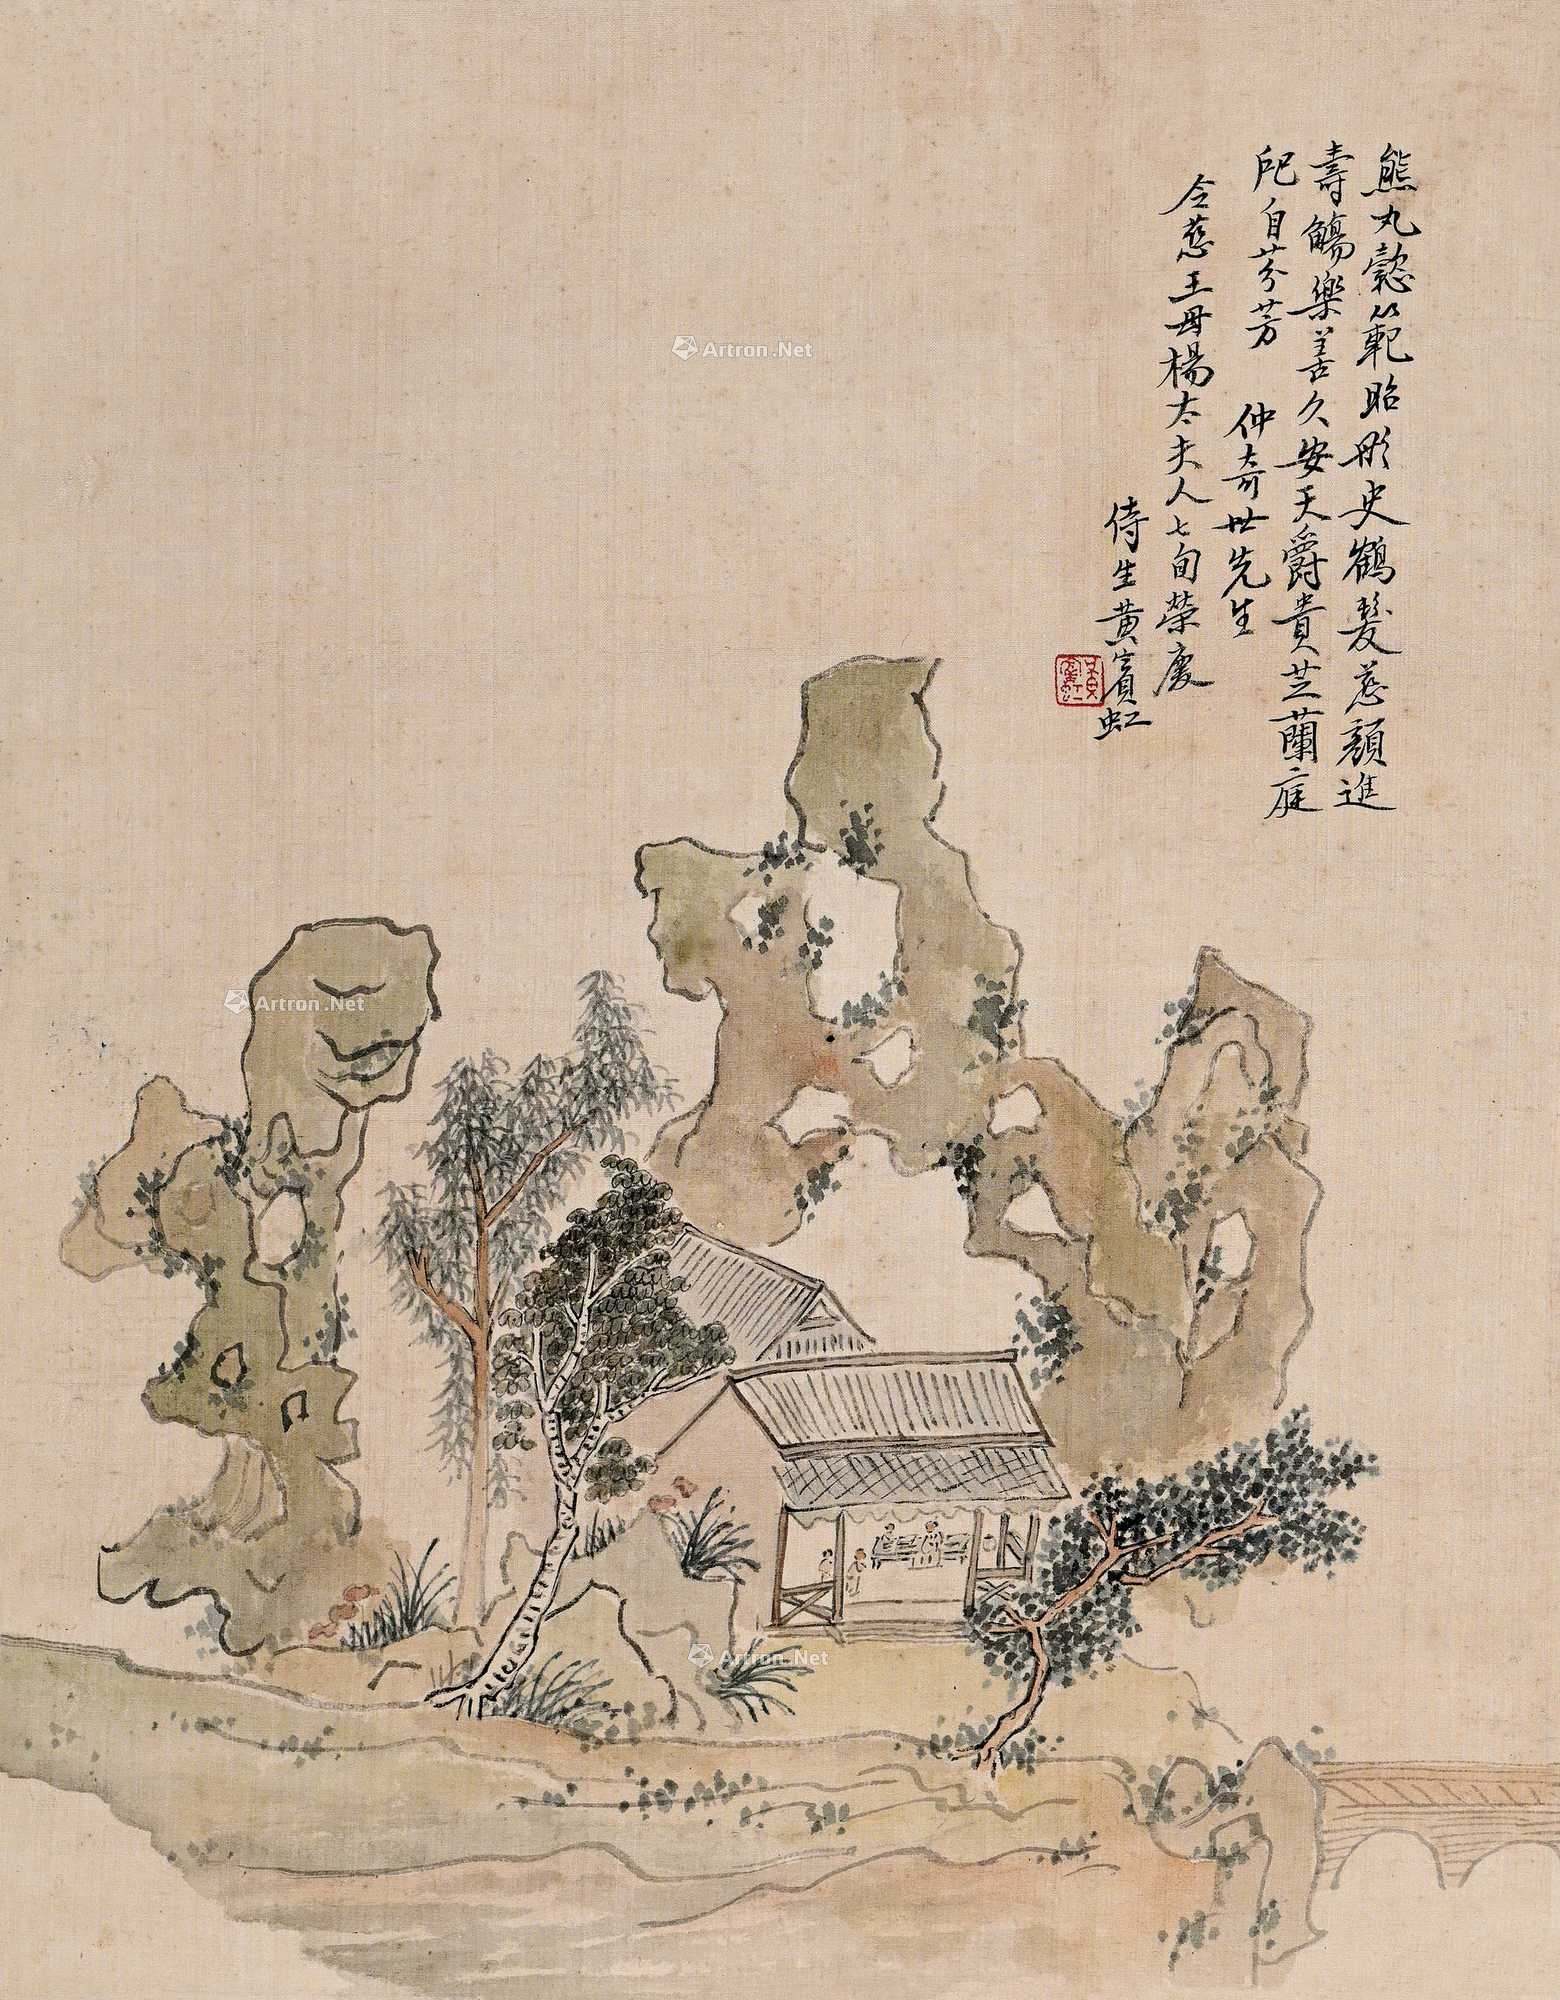 熊丸懿範昭彤史鶴髮慈顏進
壽觴樂善久安天爵貴芝蘭庭
戺自芬芳 仲奇世先生
令慈王母楊太夫人七旬榮慶
侍生黃賓虹
黃賓虹
Artron.Net
Artron.Net
Artron.Net